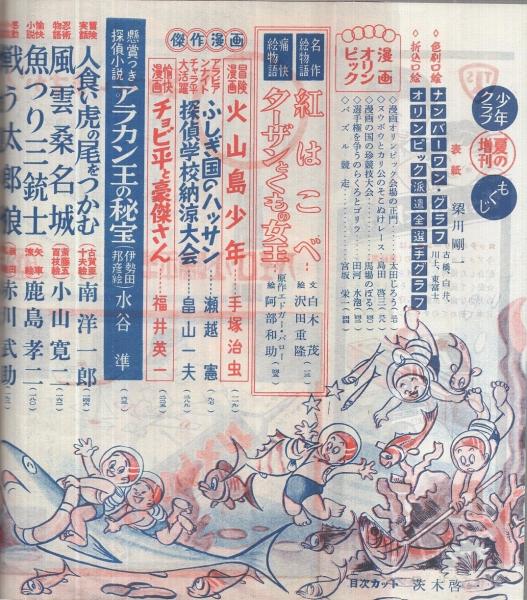 少年クラブ
夏の増刊
もくじ
表紙 梁川剛一
◇色刷口絵
ナンバーワン・グラフ 古橋、白井、川上、東富士
◇折込口絵
オリンピック派遣全選手グラフ
漫画オリンピック
◇漫画オリンピック会場の正門 太田じろう
◇ヌウボウとカリ公のそこぬけレース 島田啓三
◇漫画の国の珍競技大会 馬場のぼる
◇選手権を争うのらくろとゴリラ 田河水泡
◇パズル競走 宮坂栄一
名作絵物語
紅はこべ
文 白木茂
絵 沢田重隆
痛快絵物語
ターザンとくもの女王
原作 エドガー・バロー
絵 阿部和助
傑作漫画
冒険漫画
火山島少年 手塚治虫
アラビアンナイト
ふしぎ国のハッサン 瀬越憲
チャラ平大活躍
探偵学校納涼大会 畠山一夫
愉快漫画
チョビ平と豪傑さん 福井英一
懸賞つき探偵小説
アラカン王の秘宝 (伊勢田邦彦絵) 水谷準
冒険実話
人食い虎の尾をつかむ 古賀亜十夫絵 南洋一郎
忍術物語
風雲桑名城 斎藤五百枝絵 小山寛二
愉快小説
魚つり三銃士 矢車涼絵 鹿島孝二
戦う太郎狼 赤川武助
目次カット 茨木啓一